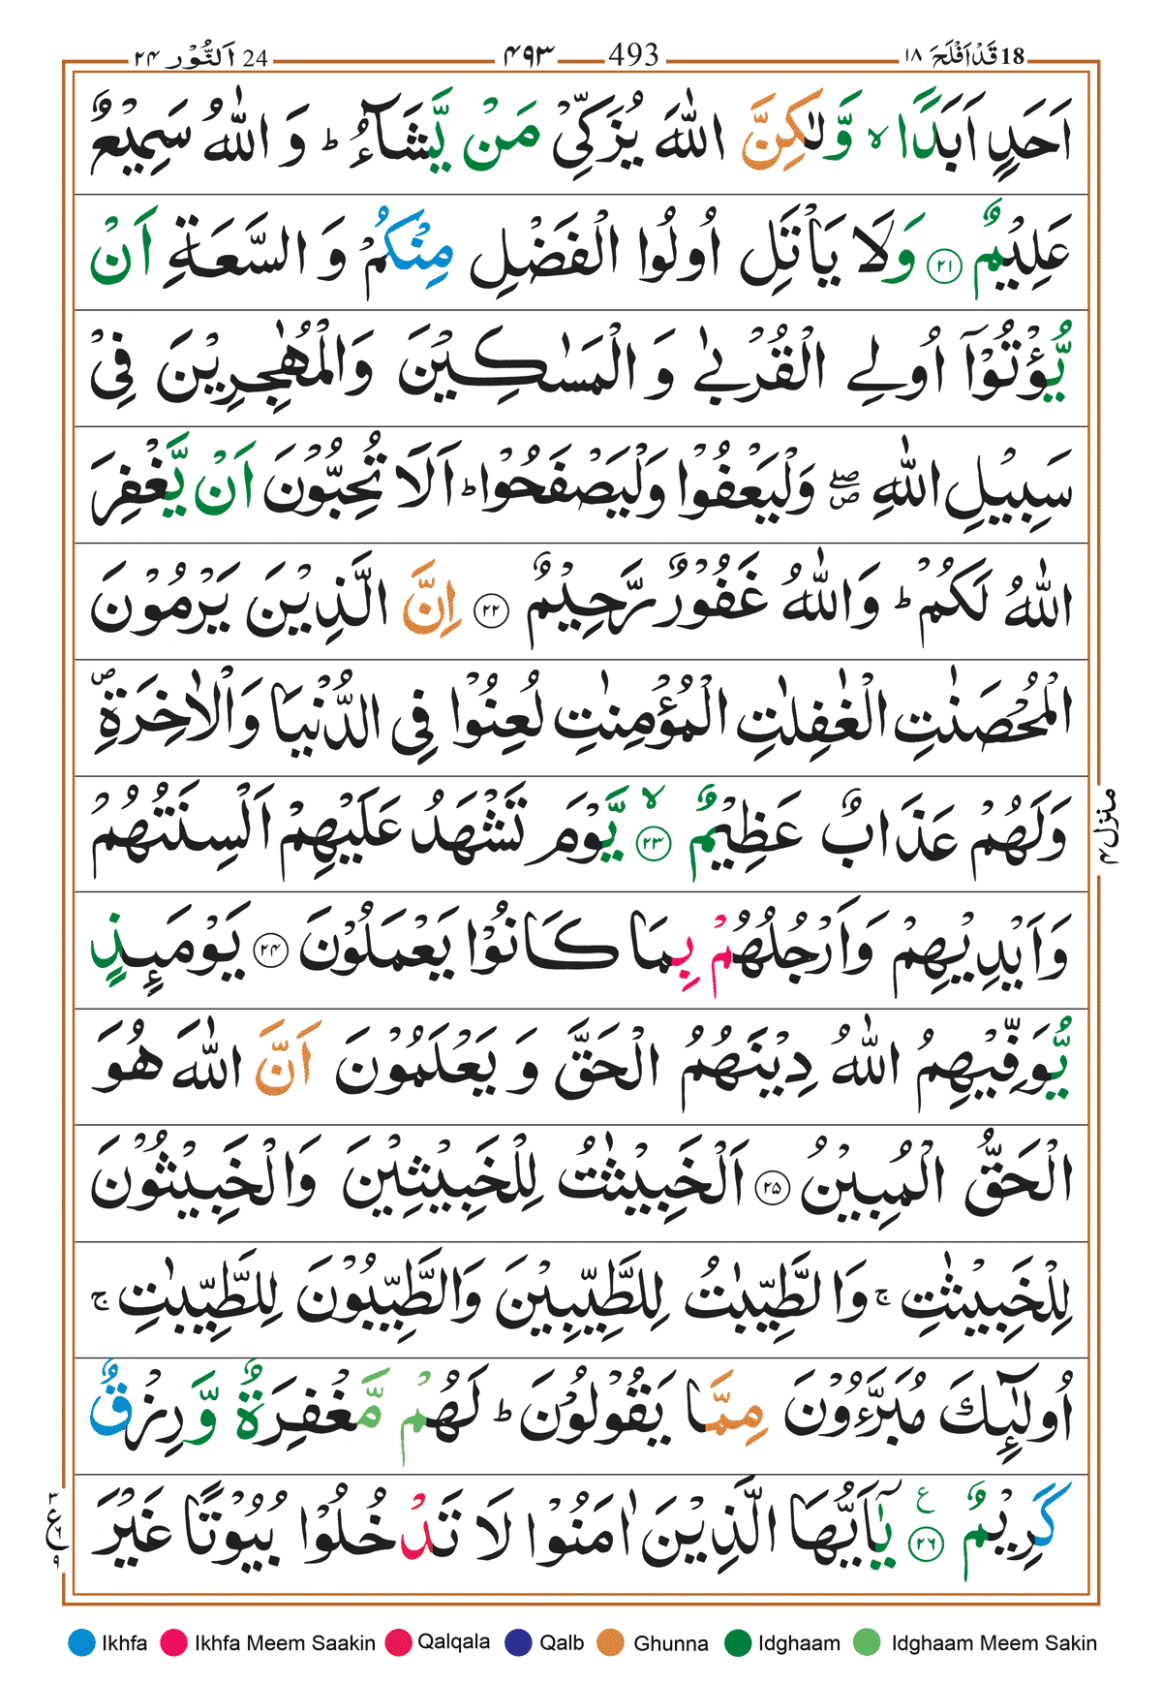 18 قَدْ اَفْلَحَ ١٨ 493 ۴۹۳ 24 اَلنُّوْر ۲۴
اَحَدٍ اَبَدًا ۙ وَّلٰكِنَّ اللّٰهَ يُزَكِّىْ مَنْ يَّشَآءُ ؕ وَ اللّٰهُ سَمِيْعٌ
عَلِيْمٌ ﴿۲۱﴾ وَلَا يَاْتَلِ اُولُوا الْفَضْلِ مِنْكُمْ وَ السَّعَةِ اَنْ
يُّؤْتُوْۤا اُولِى الْقُرْبٰى وَ الْمَسٰكِيْنَ وَالْمُهٰجِرِيْنَ فِىْ
سَبِيْلِ اللّٰهِ ۖ وَلْيَعْفُوْا وَلْيَصْفَحُوْا ؕ اَلَا تُحِبُّوْنَ اَنْ يَّغْفِرَ
اللّٰهُ لَكُمْ ؕ وَاللّٰهُ غَفُوْرٌ رَّحِيْمٌ ﴿۲۲﴾ اِنَّ الَّذِيْنَ يَرْمُوْنَ
الْمُحْصَنٰتِ الْغٰفِلٰتِ الْمُؤْمِنٰتِ لُعِنُوْا فِى الدُّنْيَا وَالْاٰخِرَةِ ۪
وَلَهُمْ عَذَابٌ عَظِيْمٌ ۙ ﴿۲۳﴾ يَّوْمَ تَشْهَدُ عَلَيْهِمْ اَلْسِنَتُهُمْ
وَاَيْدِيْهِمْ وَاَرْجُلُهُمْ بِمَا كَانُوْا يَعْمَلُوْنَ ﴿۲۴﴾ يَوْمَئِذٍ
يُّوَفِّيْهِمُ اللّٰهُ دِيْنَهُمُ الْحَقَّ وَ يَعْلَمُوْنَ اَنَّ اللّٰهَ هُوَ
الْحَقُّ الْمُبِيْنُ ﴿۲۵﴾ اَلْخَبِيْثٰتُ لِلْخَبِيْثِيْنَ وَالْخَبِيْثُوْنَ
لِلْخَبِيْثٰتِ ۚ وَالطَّيِّبٰتُ لِلطَّيِّبِيْنَ وَالطَّيِّبُوْنَ لِلطَّيِّبٰتِ ۚ
اُولٰٓئِكَ مُبَرَّءُوْنَ مِمَّا يَقُوْلُوْنَ ؕ لَهُمْ مَّغْفِرَةٌ وَّرِزْقٌ
كَرِيْمٌ ﴿۲۶﴾ ع يٰۤاَيُّهَا الَّذِيْنَ اٰمَنُوْا لَا تَدْخُلُوْا بُيُوْتًا غَيْرَ
منزل ۴
۳ ع ۶ ۹
Ikhfa Ikhfa Meem Saakin Qalqala Qalb Ghunna Idghaam Idghaam Meem Sakin